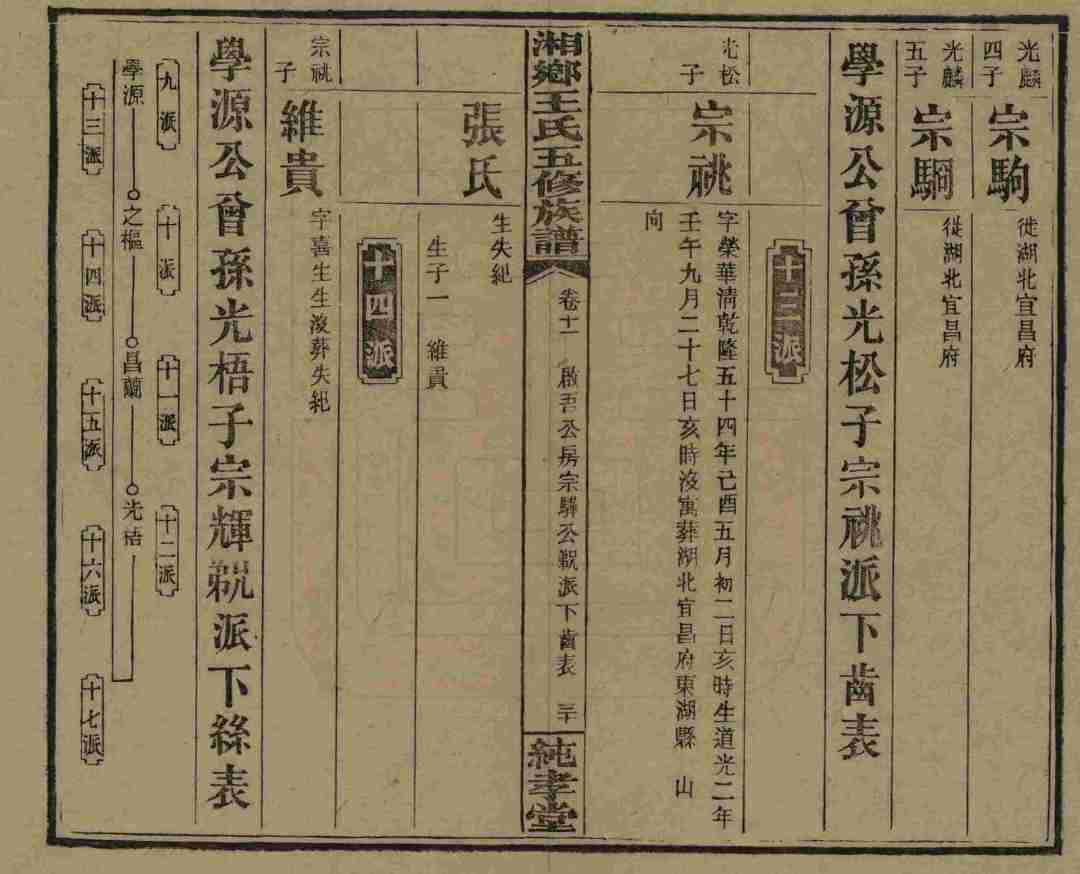 光麟四子
宗駒
徙湖北宜昌府
光麟五子
宗騆
徙湖北宜昌府
學源公曾孫光松子宗祧派下齒表
十三派
光松子
宗祧
字榮華清乾隆五十四年己酉五月初二日亥時生道光二年
壬午九月二十七日亥時沒寓葬湖北宜昌府東湖縣 山
向
湘鄉王氏五修族譜
卷十一 啟吾公房宗驛公覣派下齒表 三十
純孝堂
張氏
生失紀
生子一 維貴
十四派
宗祧子
維貴
字喜生生沒葬失紀
學源公曾孫光梧子宗輝覣派下絲表
九派
十派
十一派
十二派
學源
之樞
昌蘭
光梧
十三派
十四派
十五派
十六派
十七派